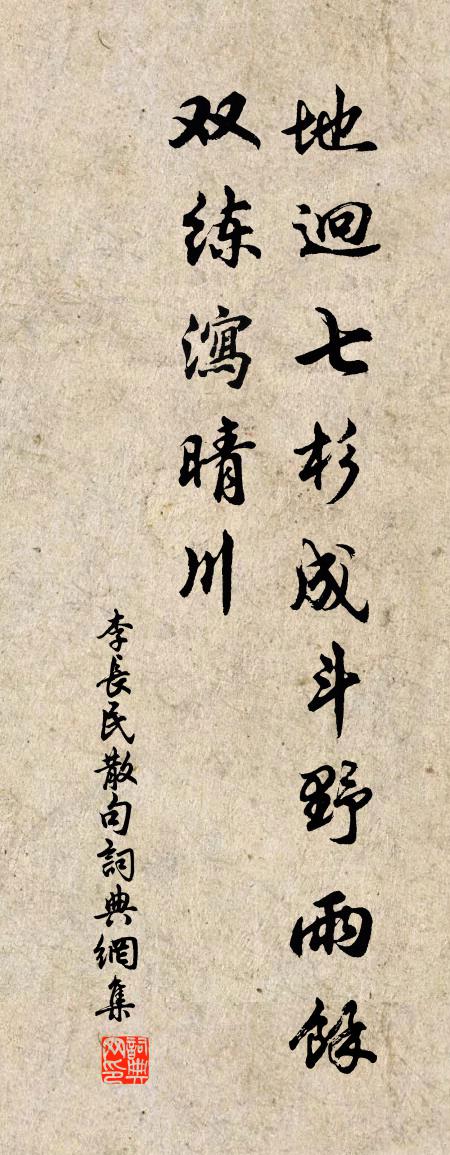 地迥七杉成斗野雨餘
双练瀉晴川
李長民散句詞典網集
詞典网印